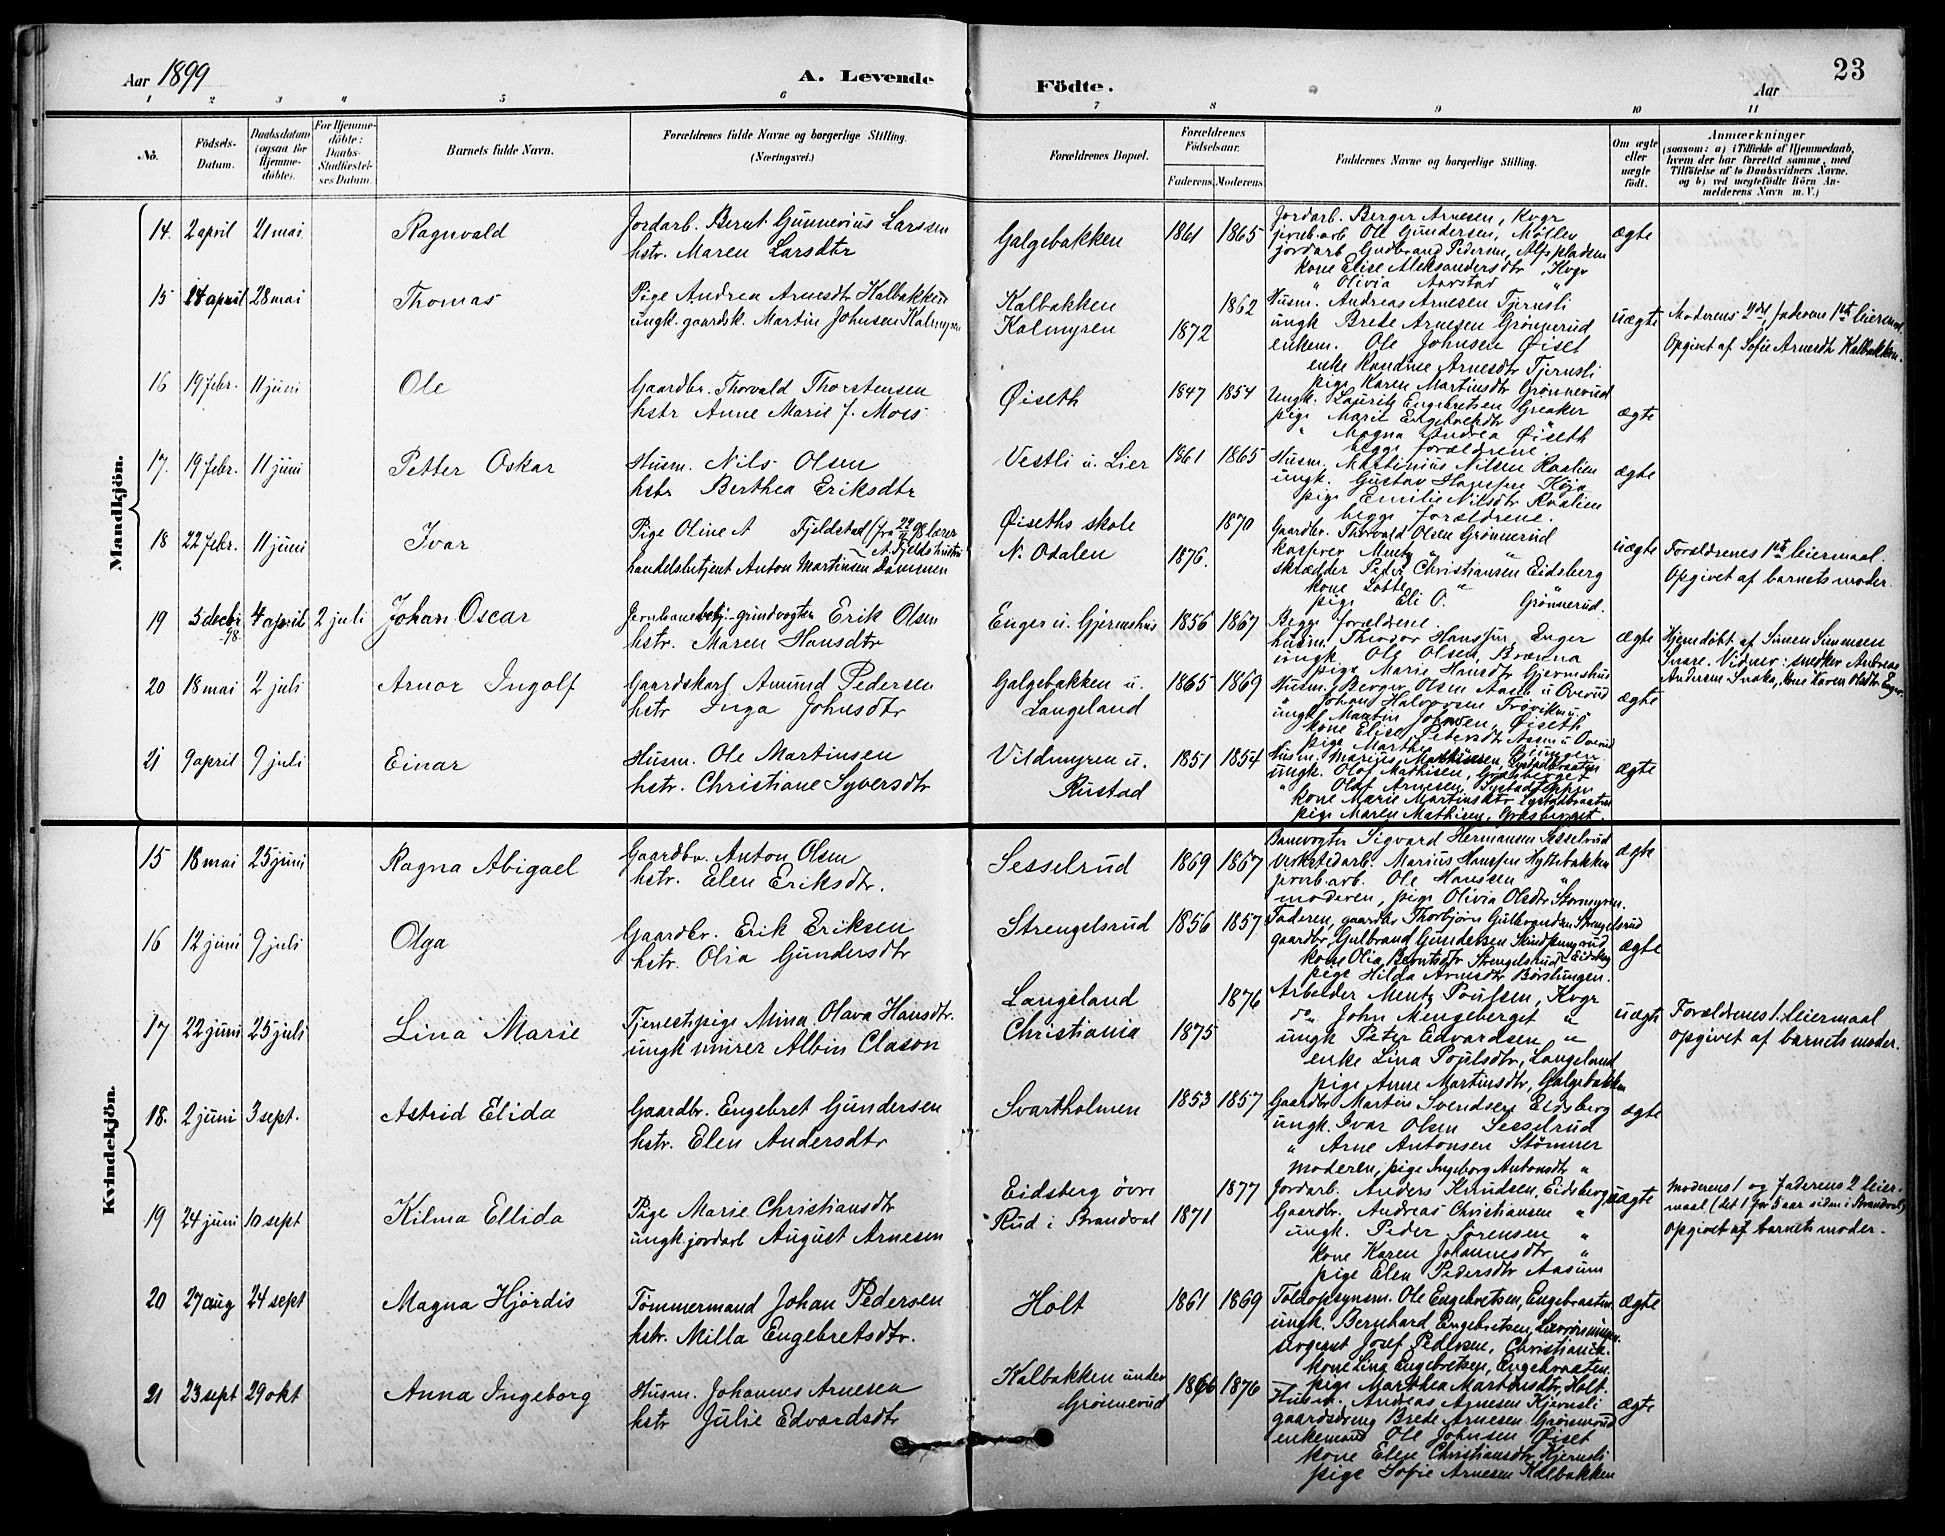 Aar 1899
A. Levende Födte.
Aar
23
1 2 3 4 5 6 7 8 9 10 11
No.
Födsels-Datum.
Daabsdatum (ogsaa for Hjemme-döbte).
For Hjemme-döbte: Daabs-Stadfæstel-ses Datum.
Barnets fulde Navn.
Forældrenes fulde Navne og borgerlige Stilling. (Næringsvei.)
Forældrenes Bopæl.
Forældrenes Födselsaar.
Faderens. Moderens.
Faddernes Navne og borgerlige Stilling.
Om ægte eller uægte födt.
Anmærkninger
(saasom: a) i Tilfælde af Hjemmedaab, hvem der har forrettet samme, med Tilföielse af to Daabsvidners Navne, og b) ved uægtefödte Börn An-melderens Navn m. V.)
Mandkjön.
14. 2 april 21 mai Ragnvald
Jordarb. Bernt Gunnerius Larssen
hstr. Maren Larsdtr
Galgebakken 1861 1865
Jordarb. Berger Arnesen, Kvgr
jernb.arb Ole Gundersen, Möllen
jordarb. Gudbrand Pedersen, Alfspladsen
kone Elise Aleksandersdtr Kvgr
" Olivia Aarstad "
ægte
15 14 april 28 mai Thomas
Pige Andrea Arnesdtr Kalbakken
ungk. gaardsk. Martin Johnsen Kalmyren
Kalbakken 1862
Kalmyren 1872
Husm. Andreas Arnesen Tjernsli
ungk Brede Arnesen Grönnerud
enkem. Ole Johnsen Öiset
enke Randine Arnesdtr Tjernsli
pige Karen Martinsdtr Grönnerud
uægte
Moderens 2det, faderens 1ste leiermaal.
Opgivet af Sofie Arnesdtr Kalbakken.
16 19 febr. 11 juni Ole
Gaardbr. Thorvald Thorstensen
hstr Anne Marie J. Moes
Öiseth 1847 1854
Ungk. Lauritz Engebretsen Greaker
pige Marie Engebretsdtr "
" Magna Andrea Öiseth
begge forældrene.
ægte
17. 19 febr. 11 juni Petter Oskar
Husm. Nils Olsen
hstr Berthea Eriksdtr
Vestli u. Lier 1861 1865
Husm. Martinius Nilsen Raalien
ungk. Gustav Hanssen Höja
pige Emilie Nilsdtr Raalien
begge forældrene.
ægte
18 22 febr. 11 juni Ivar
Pige Oline A Fjeldstad (fra 22/4 98 lærer
A. Fjelds hustru
handelsbetjent Anton Martinsen Dammen
Öiseths skole 1870
N. Odalen 1876.
Gaardbr. Thorvald Olsen Grönnerud
kasserer Mentz " "
skrædder Peder Christiansen Eidsberg
kone Lotte " "
pige Eli O. Grönnerud.
uægte
Forældrenes 1ste leiermaal.
Opgivet af barnets moder.
19 5 decbr 98. 4 april 2 juli Johan Oscar
Jernbanebetj.-grindvogter Erik Olsen
hstr. Maren Hansdtr
Enger u. Gjermshus 1856 1867
Begge forældrene.
husm. Theodor Hanssen, Enger
ungk Ole Olsen, Brænna
pige Marie Hansdtr Gjermshus
ægte
Hjemdöbt af Simen Simensen
Snare. Vidner: snedker Andreas
Andersen Snare, kone Karen Olsdtr Enger.
20 18 mai 2 juli Arnor Ingolf
Gaardskarl Amund Pedersen
hstr Inga Johnsdtr
Galgebakken u. 1865 1869
Langeland
Husm. Berger Olsen Aasen u Overud
" Johan Halvorsen
ungk. Martin Johnsen, Öiseth
kone Elise Pedersdtr Aasen u Overud
pige Marthe
ægte
21 9 april 9 juli Einar
Husm. Ole Martinsen
hstr. Christiane Syversdtr
Vildmyren u. 1851 1854
Rustad
Husm. Marius
ungk. Olof Mathisen, Græsberget
" Olaf Arnesen,
kone Marie Martinsdtr
pige Maren Mathisen, Græsberget.
ægte
Kvindekjön.
15 18 mai 25 juni Ragna Abigael
Gaardbr. Anton Olsen
hstr. Elen Eriksdtr.
Sesselrud 1869 1867
Banevogter Sigvard Hermansen Sesselrud
Verkstedarb. Marius Hanssen Hyttebakken
jernb.arb. Ole Hanssen "
moderen, pige Olivia Olsdtr Stormyren.
ægte
16 12 juni 9 juli Olga
Gaardbr. Erik Eriksen
hstr. Olia Gundersdtr
Strengelsrud 1856 1857
Faderen, gaardbr Thorbjörn Gulbrandsen Strengelsrud
gaardbr. Gulbrand Gundersen Skindpungrud
kone Olia Berntsdtr Strengelsrud
pige Hilda Arnesdtr Börslungen.
ægte
17 22 juni 25 juli Lina Marie
Tjenestepige Mina Olava Hansdtr.
ungk murer Albin Clason
Langeland 1876
Christiania 1875
Arbeider Mentz Poulsen, Kvgr
do John Mengeberget "
ungk Peter Edvardsen "
enke Lina Poulsdtr, Langeland
pige Anne Martinsdtr, Galgebakken
uægte
Forældrenes 1. leiermaal
opgivet af barnets moder.
18. 2 juni 3 sept. Astrid Elida
Gaardbr. Engebret Gundersen
hstr. Elen Andersdtr
Svartholmen 1853 1857
Gaardbr Martin Svendsen Eidsberg
ungk. Ivar Olsen Sesselrud
" Arne Antonsen Stömner
moderen, pige Ingeborg Antonsdtr "
ægte
19 24 juni 10 sept Kilma Ellida
Pige Marie Christiansdtr
ungk. jordarb August Arnesen
Eidsberg övre 1877
Rud i Brandval 1871
Jordarb. Anders Knudsen, Eidsberg
Gaardbr. Andreas Christiansen "
ungk. Peder Sörensen "
kone Karen Johannesdtr "
pige Elen Pedersdtr Aasum
uægte
Moderens 1 og faderens 2 leier-
maal (det 1 for 5 aar siden i Brandval)
opgivet af barnets moder.
20 27 aug 24 sept Magna Hjördis
Tömmermand Johan Pedersen
hstr. Milla Engebretsdtr.
Holt 1861 1869
Toldopsynsm. Ole Engebretsen, Engebraaten
ungk. Bernhard Engebretsen,
sergeant Josef Pedersen, Christiania.
kone Lina Engebretsen, Engebraaten
pige Marthea Martinsdtr, Holt.
ægte
21 23 sept 29 okt Anna Ingeborg
Husm. Johannes Arnesen
hstr Julie Edvardsdtr
Kalbakken under 1866 1876
Grönnerud
Husm. Andreas Arnesen Kjernsli
gaardsdreng Brede Arnesen Grönnerud
enkemand Ole Johnsen Öiset
kone Elen Christiansdtr, Kjernsli
pige Sofie Arnesen Kalbakken
ægte